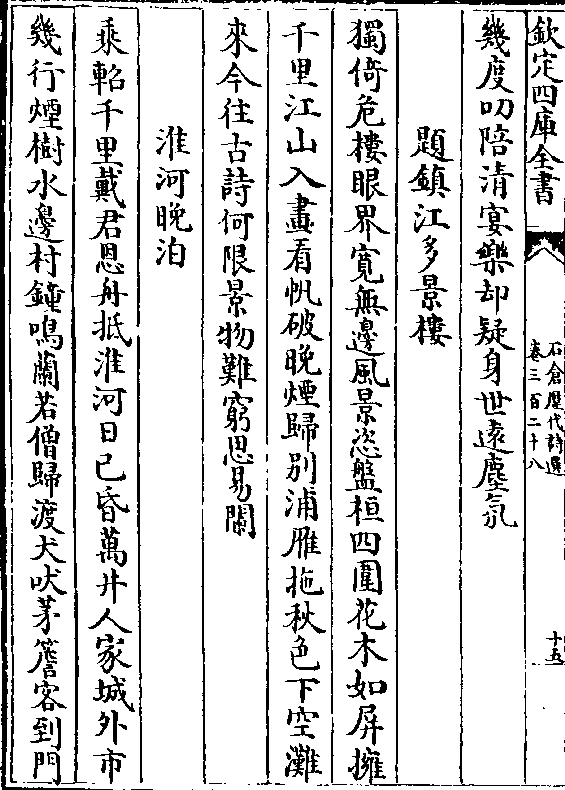 欽定四庫全書
石倉歷代詩選
卷三百二十八
十五
幾度叨陪清宴樂却疑身世遠塵氛
題鎮江多景樓
獨倚危樓眼界寬無邊風景恣盤桓四圍花木如屏擁
千里江山入畫看帆破晚煙歸別浦雁拖秋色下空灘
來今往古詩何限景物難窮思易闌
淮河晚泊
乘軺千里戴君恩舟抵淮河日已昏萬井人家城外市
幾行煙樹水邊村鐘鳴蘭若僧歸渡犬吠茅簷客到門